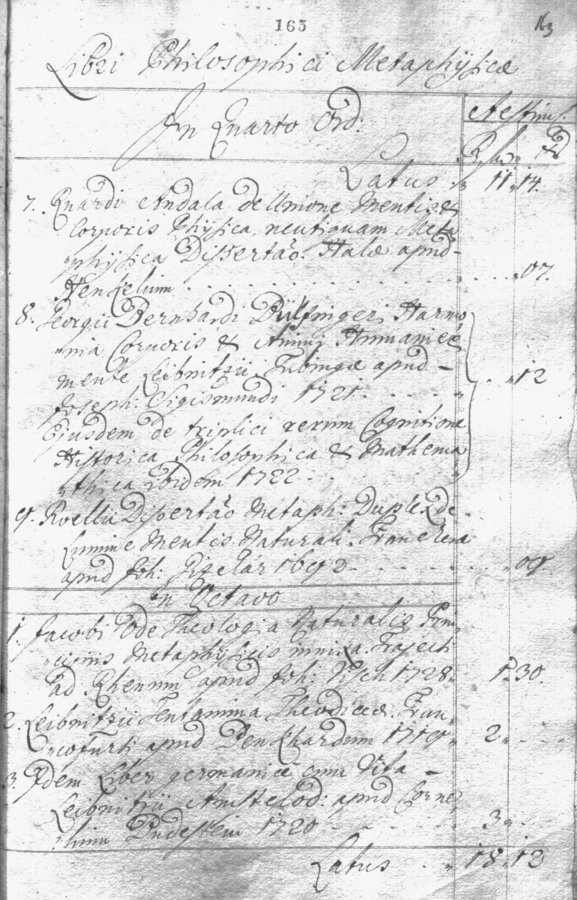 165
163
Libri Philosophici Metaphysicæ
In Quarto Ord:
Æstim:
Latus 11 14.
7. Ruardi Andala de Unione Mentis &
Corporis Physica, neutiquam Meta
physica Dissertaõ. Halæ apud
Henckelium 07.
8. Georgii Bernhardi Bülfingeri Harmo
nia Corporis & Animi Humani ex
mente Leibnitzii Tubingæ apud
Joseph: Sigismundi 1721. 12
Ejusdem de triplici rerum Cognitione
Historica Philosophica & Mathema
thica ibidem 1722
9. Roellii Dissertaõ Metaph: Duplex de
Lumine Mentis Naturali. Franekera
apud Joh: Gizelar 1693. 09
in Octavo
1. Jacobi Ode Theologia Naturalis Prin
cipiis Metaphysicis innixa. Trajecti
ad Rhenum apud Joh: Visch 1728. 1. 30
2. Leibnitzii Tentamina Theodiceæ. Fran
cofurti apud 1719 2
3. Idem Liber germanicè cum Vita
Leibnitzii Amstelod: apud Corne
lium 1720 3
Latus 18. 13